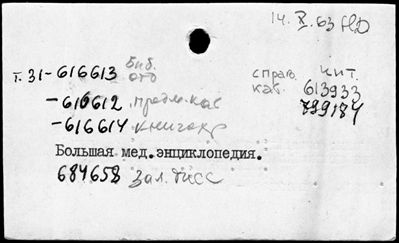 14.X.63
т.31-616613 биб. отд
справ. каб.
чит.
613933
799184
-616612
-616614 книгохр
Большая мед.энциклопедия.
684658 Зал. дисс